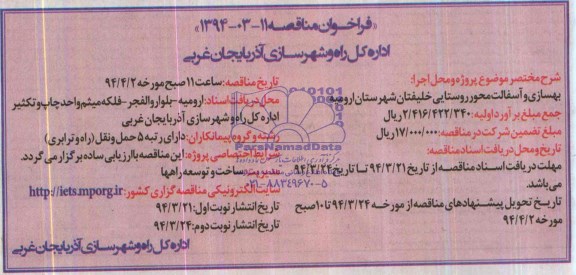 «فراخوان مناقصه ۱۱-۰۳-۱۳۹۴»
اداره کل راه و شهرسازی آذربایجان غربی
شرح مختصر موضوع پروژه و محل اجرا:
بهسازی و آسفالت محور روستایی خلیفتان شهرستان ارومیه
جمع مبلغ برآورد اولیه: ۲/۴۱۶/۴۲۲/۳۴۰ریال
مبلغ تضمین شرکت در مناقصه: ۱۷/۰۰۰/۰۰۰ریال
تاریخ و محل دریافت اسناد مناقصه:
مهلت دریافت اسناد مناقصه از تاریخ ۹۴/۳/۲۱ تا تاریخ ۹۴/۳/۲۴
می باشد.
تاریخ تحویل پیشنهادهای مناقصه از مورخه ۹۴/۳/۲۴ تا ۱۰صبح
مورخه ۹۴/۴/۲
تاریخ مناقصه: ساعت ۱۱ صبح مورخه ۹۴/۴/۲
محل دریافت اسناد: ارومیه-بلوار والفجر-فلکه میثم واحد چاپ و تکثیر
اداره کل راه و شهرسازی آذربایجان غربی
رشته و گروه پیمانکاران: دارای رتبه ۵ حمل و نقل(راه و ترابری)
شرایط اختصاصی پروژه: این مناقصه با ارزیابی ساده برگزار می گردد.
مدیریت ساخت و توسعه راهها
سایت الکترونیکی مناقصه گزاری کشور: http://iets.mporg.ir
تاریخ انتشار نوبت اول: ۹۴/۳/۲۱
تاریخ انتشار نوبت دوم: ۹۴/۳/۲۴
اداره کل راه و شهرسازی آذربایجان غربی
ParsNamadData
۰۲۱-۸۸۳۴۹۶۷۰-۵